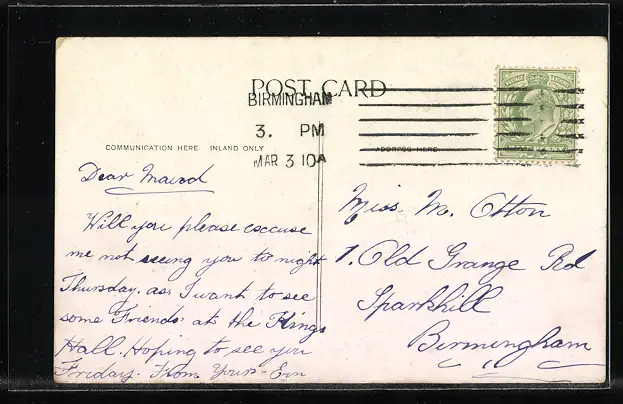 POST CARD
BIRMINGHAM
3. PM
MAR 3 10A
COMMUNICATION HERE INLAND ONLY
ADDRESS HERE
HALFPENNY
Dear Maud
Will you please excuse
me not seeing you to night
Thursday, as I want to see
some Friends at the Kings
Hall. Hoping to see you
Friday. From Yours - Ern
Miss. M. Otton
1. Old Grange Rd
Sparkhill
Birmingham